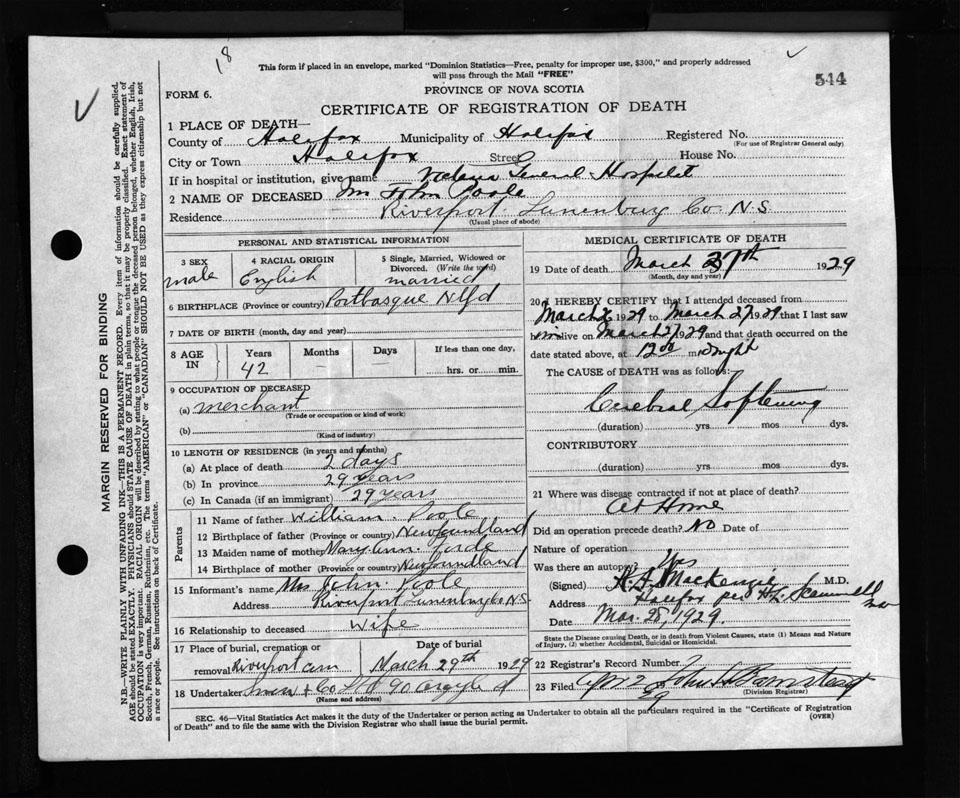 18
This form if placed in an envelope, marked "Dominion Statistics—Free, penalty for improper use, $300," and properly addressed
will pass through the Mail "FREE"
544
FORM 6.
PROVINCE OF NOVA SCOTIA
CERTIFICATE OF REGISTRATION OF DEATH
1 PLACE OF DEATH—
County of Halifax Municipality of Halifax Registered No.
(For use of Registrar General only)
City or Town Halifax Street House No.
If in hospital or institution, give name Victoria General Hospital
2 NAME OF DECEASED Mr John Poole
Residence Riverport Lunenburg Co N.S
(Usual place of abode)
PERSONAL AND STATISTICAL INFORMATION
3 SEX 4 RACIAL ORIGIN 5 Single, Married, Widowed or
Divorced. (Write the word)
male English married
6 BIRTHPLACE (Province or country) Portbasque Nfld
7 DATE OF BIRTH (month, day and year)
8 AGE IN Years Months Days If less than one day,
42 – hrs. or min.
9 OCCUPATION OF DECEASED
(a) merchant
(Trade or occupation or kind of work)
(b)
(Kind of industry)
10 LENGTH OF RESIDENCE (in years and months)
(a) At place of death 2 days
(b) In province 29 years
(c) In Canada (if an immigrant) 29 years
Parents
11 Name of father William Poole
12 Birthplace of father (Province or country) Newfoundland
13 Maiden name of mother Mary Ann
14 Birthplace of mother (Province or country) Newfoundland
15 Informant's name Mrs John Poole
Address Riverport Lunenburg Co N.S
16 Relationship to deceased Wife
17 Place of burial, cremation or Date of burial
removal Riverport Cem March 29th 1929
18 Undertaker Snow & Co Ltd 90 Argyle St
(Name and address)
MEDICAL CERTIFICATE OF DEATH
19 Date of death March 27th 1929
(Month, day and year)
20 I HEREBY CERTIFY that I attended deceased from
March 26 1929 to March 27 1929 that I last saw
him alive on March 27 1929 and that death occurred on the
date stated above, at 12.00 midnight
The CAUSE of DEATH was as follows:
Cerebral Softening
(duration) yrs mos dys.
CONTRIBUTORY
(duration) yrs mos dys.
21 Where was disease contracted if not at place of death?
At Home
Did an operation precede death? No Date of
Nature of operation
Was there an autopsy? Yes
(Signed) MacKenzie M.D.
Address Halifax per H.L. Scammell
Date Mar. 28, 1929.
State the Disease causing Death, or in death from Violent Causes, state (1) Means and Nature
of Injury, (2) whether Accidental, Suicidal or Homicidal.
22 Registrar's Record Number
23 Filed Apr 2 29 John A Barnstead
(Division Registrar)
SEC. 46—Vital Statistics Act makes it the duty of the Undertaker or person acting as Undertaker to obtain all the particulars required in the "Certificate of Registration
of Death" and to file the same with the Division Registrar who shall issue the burial permit. (OVER)
MARGIN RESERVED FOR BINDING
N.B.—WRITE PLAINLY WITH UNFADING INK—THIS IS A PERMANENT RECORD. Every item of information should be carefully supplied.
AGE should be stated EXACTLY. PHYSICIANS should STATE CAUSE OF DEATH in plain terms, so that it may be properly classified. Exact statement of
OCCUPATION is very important. RACIAL ORIGIN will be described by stating to what people or tongue the deceased person belonged, whether English, Irish,
Scotch, French, German, Russian, Ruthenian, etc. The terms "AMERICAN" or "CANADIAN" SHOULD NOT BE USED as they express citizenship but not
a race or people. See instructions on back of Certificate.